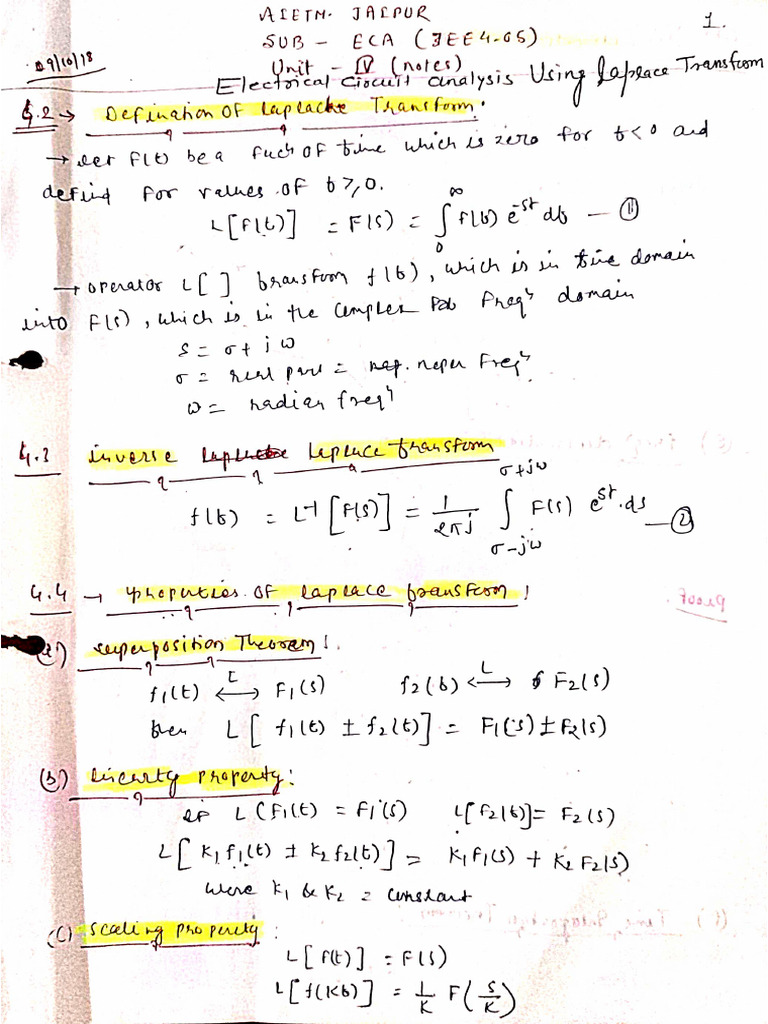 AIETM. JAIPUR
1.
SUB - ECA (3EE4-05)
09/10/18
Unit - IV (notes)
Electrical Circuit analysis Using Laplace Transform
4.2 → Defination of Laplace Transform.
→ Let f(t) be a fucⁿ of time which is zero for t<0 and
defind for values of t≥0.
L[f(t)] = F(s) = ∫₀^∞ f(t) e^-st dt — ①
→ operator L[ ] transform f(t), which is in time domain
into F(s), which is in the complex Freqʸ domain
s = σ + jω
σ = real part = neper Freqʸ
ω = radian freqʸ
4.3 inverse Laplace transform
f(t) = L⁻¹[F(s)] = 1/2πj ∫_{σ-jω}^{σ+jω} F(s) e^st .ds — ②
4.4 → properties of Laplace transform!
(a) superposition Theorem!
f₁(t) ⟷^L F₁(s) f₂(t) ⟷^L F₂(s)
then L[f₁(t) ± f₂(t)] = F₁(s) ± F₂(s)
(b) Linearty property:
if L(f₁(t) = F₁(s) L[f₂(t)] = F₂(s)
L[K₁f₁(t) ± K₂f₂(t)] = K₁F₁(s) + K₂F₂(s)
were K₁ & K₂ = constant
(C) Scaling property:
L[f(t)] = F(s)
L[f(Kt)] = 1/K F(s/K)